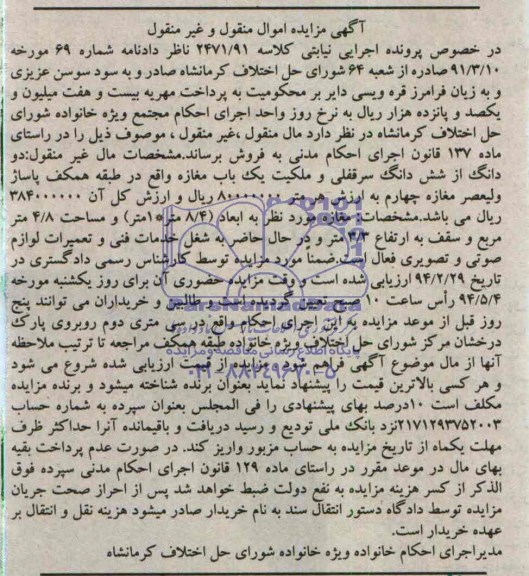 آگهی مزایده اموال منقول و غیر منقول
در خصوص پرونده اجرایی نیابتی کلاسه ۲۴۷۱/۹۱ ناظر دادنامه شماره ۶۹ مورخه
۹۱/۳/۱۰ صادره از شعبه ۶۴ شورای حل اختلاف کرمانشاه صادر و به سود سوسن عزیزی
و به زیان فرامرز قره ویسی دایر بر محکومیت به پرداخت مهریه بیست و هفت میلیون و
یکصد و پانزده هزار ریال به نرخ روز واحد اجرای احکام مجتمع ویژه خانواده شورای
حل اختلاف کرمانشاه در نظر دارد مال منقول ،غیر منقول ، موصوف ذیل را در راستای
ماده ۱۳۷ قانون اجرای احکام مدنی به فروش برساند.مشخصات مال غیر منقول:دو
دانگ از شش دانگ سرقفلی و ملکیت یک باب مغازه واقع در طبقه همکف پاساژ
ولیعصر مغازه چهارم به ارزش هر متر ۸۰۰۰۰۰۰۰ ریال و ارزش کل آن ۳۸۴۰۰۰۰۰۰
ریال می باشد.مشخصات: مغازه مورد نظر به ابعاد (۸/۴ متر*۱متر) و مساحت ۴/۸ متر
مربع و سقف به ارتفاع ۳/۳ متر و در حال حاضر به شغل خدمات فنی و تعمیرات لوازم
صوتی و تصویری فعال است.ضمنا مورد مزایده توسط کارشناس رسمی دادگستری در
تاریخ ۹۴/۲/۲۹ ارزیابی شده است و وقت مزایده حضوری آن برای روز یکشنبه مورخه
۹۴/۵/۴ رأس ساعت ۱۰ صبح تعیین گردیده است و طالبین و خریداران می توانند پنج
روز قبل از موعد مزایده به این اجرای احکام واقع در سی متری دوم روبروی پارک
درخشان مرکز شورای حل اختلاف ویژه خانواده طبقه همکف مراجعه تا ترتیب ملاحظه
آنها از مال موضوع آگهی فراهم شود . مزایده از قیمت ارزیابی شده شروع می شود
و هر کسی بالاترین قیمت را پیشنهاد نماید بعنوان برنده شناخته میشود و برنده مزایده
مکلف است ۱۰درصد بهای پیشنهادی را فی المجلس بعنوان سپرده به شماره حساب
۲۱۷۱۲۹۳۷۵۲۰۰۳نزد بانک ملی تودیع و رسید دریافت و باقیمانده آنرا حداکثر ظرف
مهلت یکماه از تاریخ مزایده به حساب مزبور واریز کند. در صورت عدم پرداخت بقیه
بهای مال در موعد مقرر در راستای ماده ۱۲۹ قانون اجرای احکام مدنی سپرده فوق
الذکر از کسر هزینه مزایده به نفع دولت ضبط خواهد شد پس از احراز صحت جریان
مزایده توسط دادگاه دستور انتقال سند به نام خریدار صادر میشود هزینه نقل و انتقال بر
عهده خریدار است.
مدیراجرای احکام خانواده ویژه خانواده شورای حل اختلاف کرمانشاه
ParsNamadData
پایگاه اطلاع رسانی مناقصه و مزایده
۰۲۱-۸۸۳۴۹۶۷۰-۵